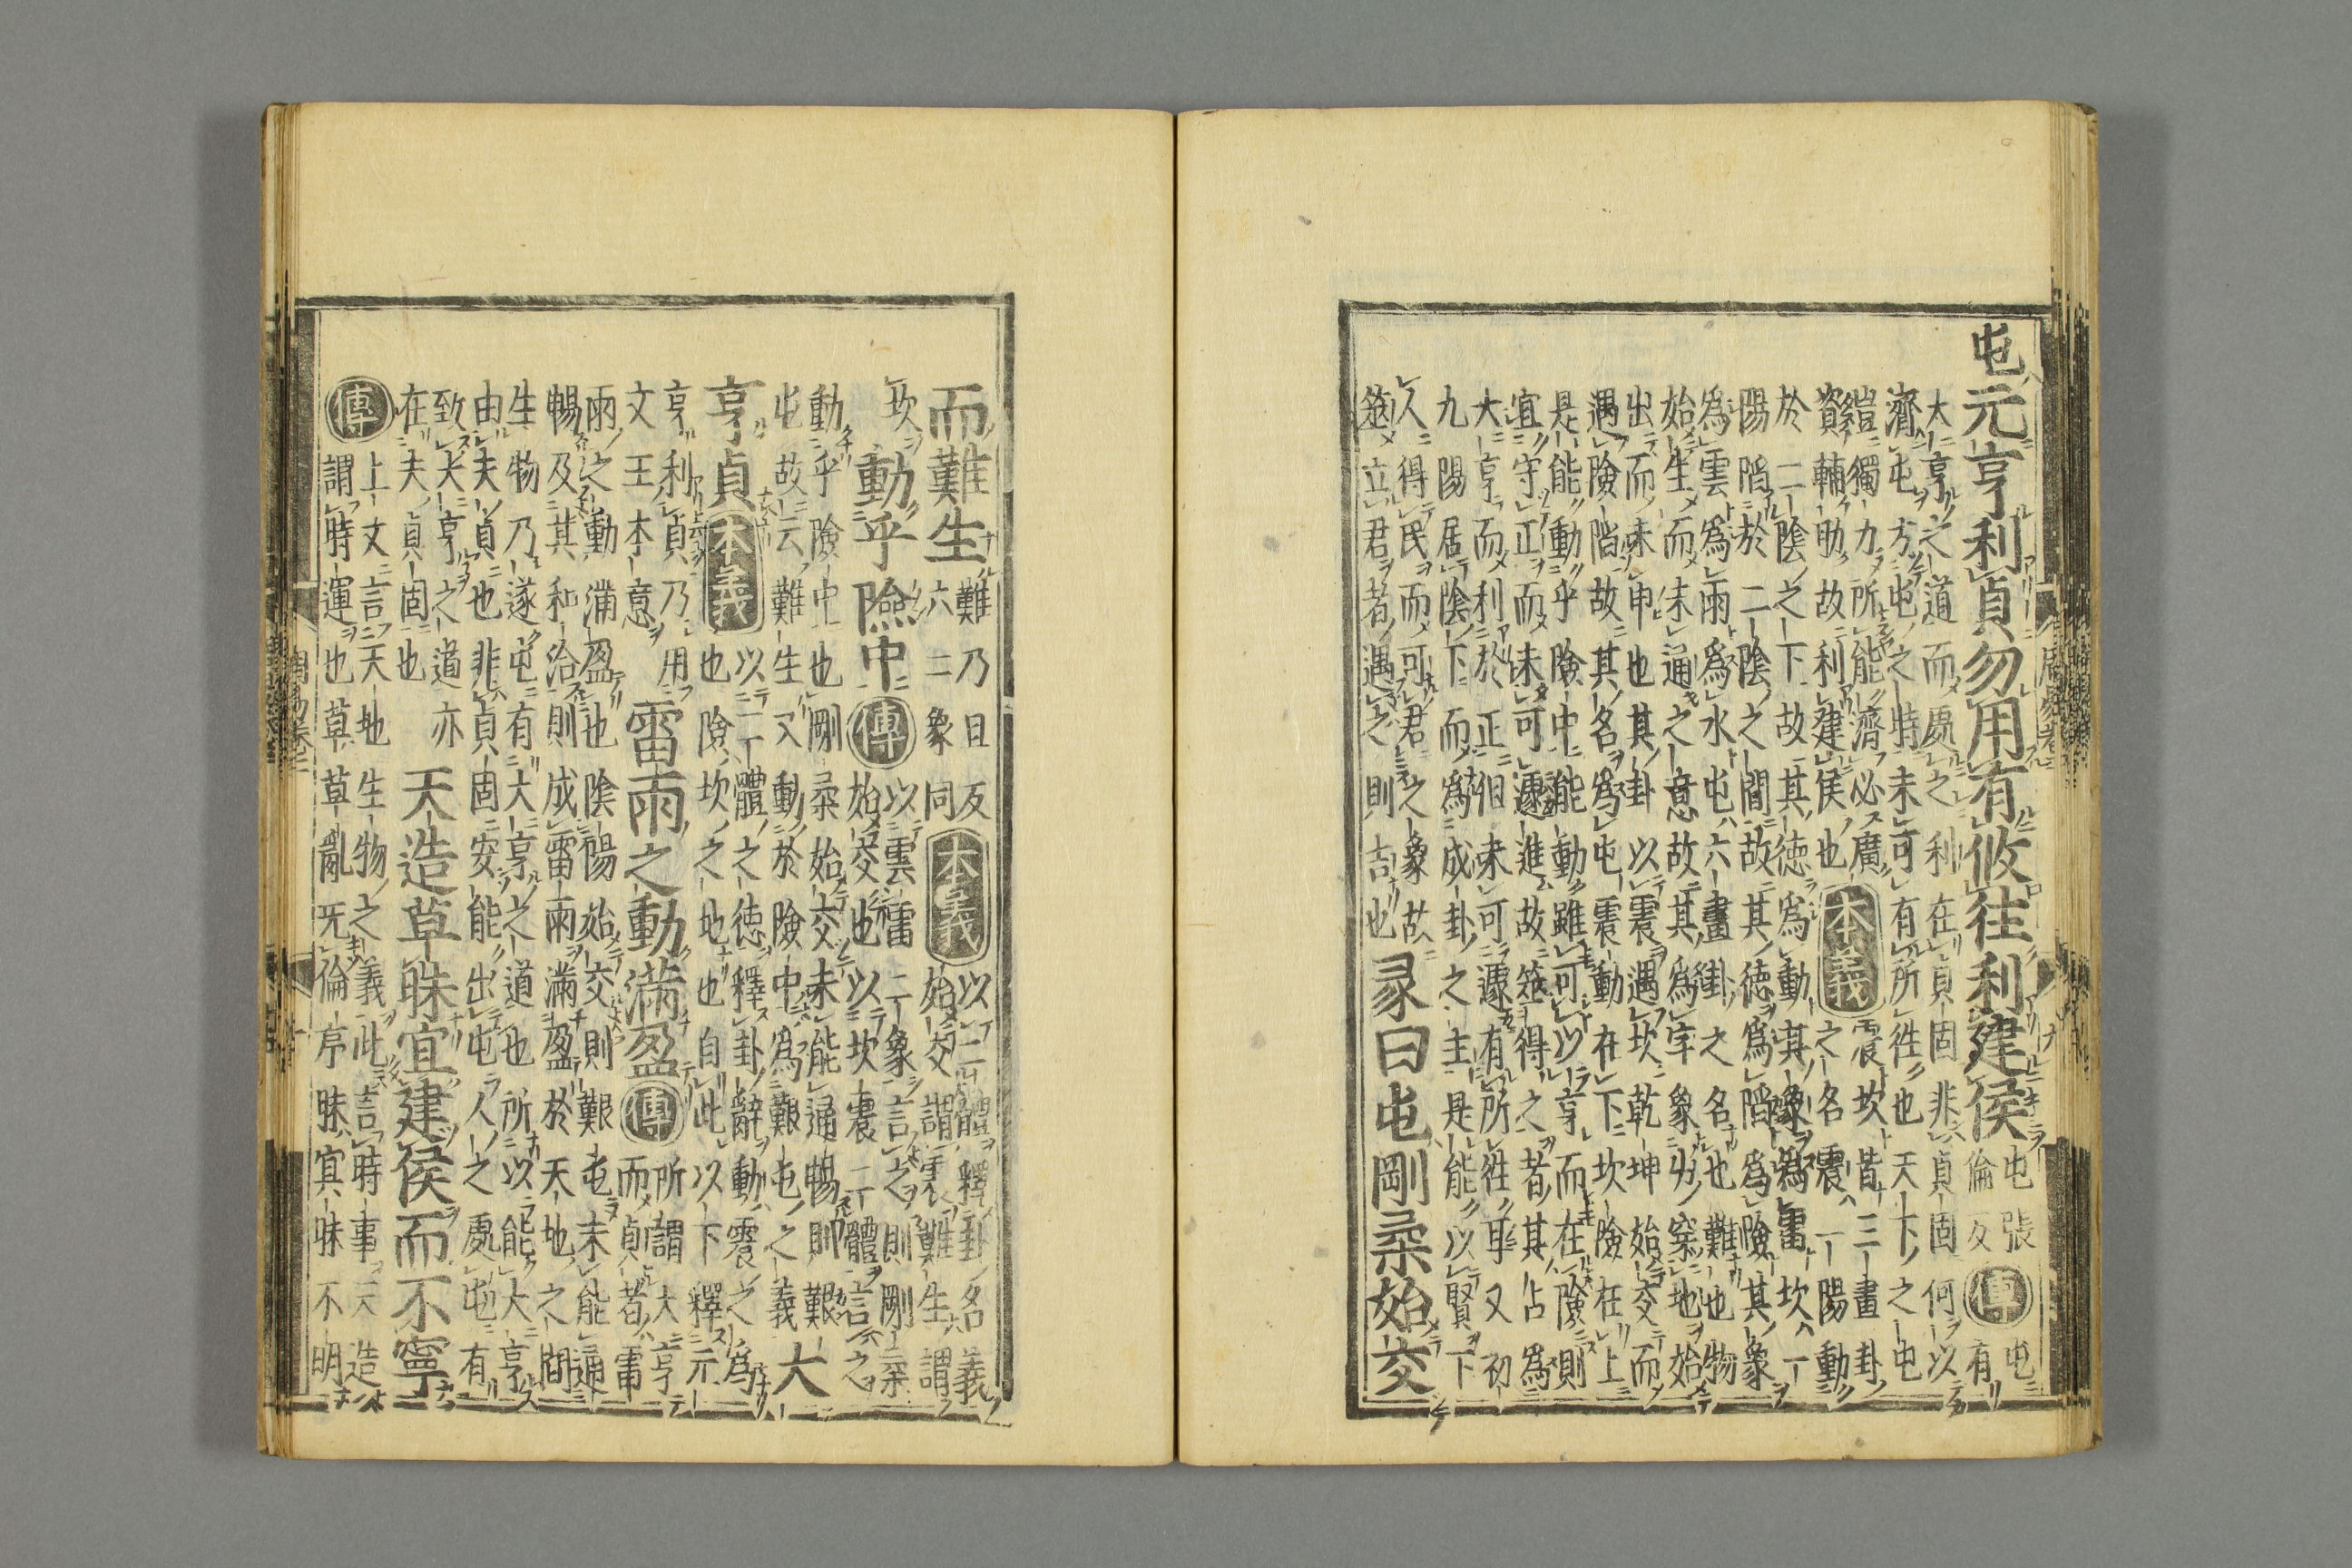 屯元亨利貞勿用有攸往利建侯屯張倫反傳屯有
大亨之道而處之利在貞固非貞固何以
濟屯方屯之時未可有所往也天下之屯
豈獨力所能濟必廣
資輔助故利建侯也本義震坎皆三畫卦
之名震一陽動
於二陰之下故其德為動其象為雷坎一
陽陷於二陰之間故其德為陷為險其象
為雲為雨為水屯六畫卦之名也難也物
始生而未通之意故其為字象屮穿地始
出而未申也其卦以震遇坎乾坤始交而
遇險陷故其名為屯震動在下坎險在上
是能動乎險中能動雖可以亨而在險則
宜守正而未可遽進故筮得之者其占為
大亨而利於正但未可遽有所往耳又初
九陽居陰下而為成卦之主是能以賢下
人得民而可君之象故
筮立君者遇之則吉也彖曰屯剛柔始交
而難生難乃旦反六二象同本義以二體釋卦名義
始交謂震難生謂
坎動乎險中傳以雲雷二象言之則剛柔
始交也以坎震二體言之
動乎險中也剛柔始交未能通暢則艱
屯故云難生又動於險中為艱屯之義大
亨貞本義以二體之德釋卦辭動震之為
也險坎之地也自此以下釋元
亨利貞乃用
文王本意雷雨之動滿盈傳所謂大亨
而貞者雷
雨之動滿盈也陰陽始交則艱屯未能通
暢及其和洽則成雷雨滿盈於天地之間
生物乃遂屯有大亨之道也所以能大亨
由夫貞也非貞固安能出屯人之處屯有
致大亨之道亦
在夫貞固也天造草昧宜建侯而不寧
傳上文言天地生物之義此言時事天造
謂時運也草草亂无倫序昧冥昧不明